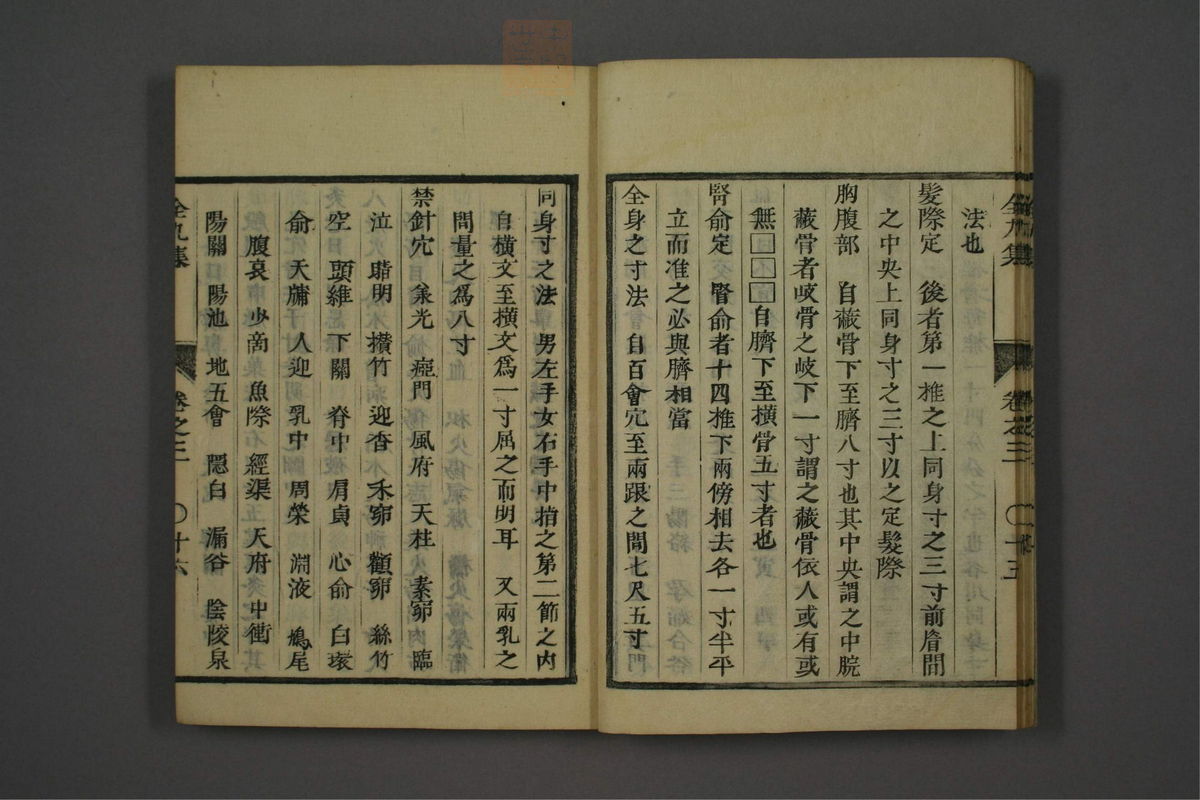 法也
髮際定　後者第一椎之上同身寸之三寸前眉間
之中央上同身寸之三寸以之定髮際
胸腹部　自蔽骨下至臍八寸也其中央謂之中脘
蔽骨者岐骨之岐下一寸謂之蔽骨依人或有或
無□□□自臍下至橫骨五寸者也
腎俞定　腎俞者十四椎下兩傍相去各一寸半平
立而准之必與臍相當
全身之寸法　自百會穴至兩跟之間七尺五寸
全九集　卷之三　〇十五
同身寸之法　男左手女右手中指之第二節之內
自橫文至橫文爲一寸屈之而明耳　又兩乳之
間量之爲八寸
禁針穴　承光　瘂門　風府　天柱　素窌　臨
泣　睛明　攅竹　迎香　禾窌　顴窌　絲竹
空　頭維　下關　脊中　肩貞　心俞　白環
俞　天牖　人迎　乳中　周榮　淵液　鳩尾
腹哀　少商　魚際　經渠　天府　中衝
陽關　陽池　地五會　隱白　漏谷　陰陵泉
全九集　卷之三　〇十六